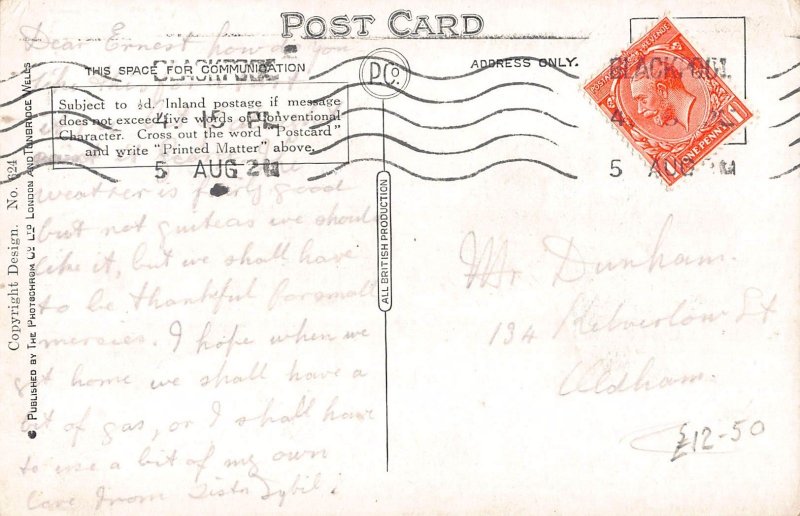 POST CARD
THIS SPACE FOR COMMUNICATION
ADDRESS ONLY.
P.Co.
Subject to ½d. Inland postage if message
does not exceed five words of Conventional
Character. Cross out the word "Postcard"
and write "Printed Matter" above.
BLACKPOOL
5 AUG
POSTAGE REVENUE
ONE PENNY
1
BLACKPOOL
5 AUG
Copyright Design. No. 624
PUBLISHED BY THE PHOTOCHROM Co LTD LONDON AND TUNBRIDGE WELLS
ALL BRITISH PRODUCTION
Dear Ernest how do you
weather is fairly good
but not quite as we should
like it, but we shall have
to be thankful for small
mercies. I hope when we
get home we shall have a
bit of gas, or I shall have
to use a bit of my own
love from Sister Sybil.
Mr Dunham.
134 St
Oldham.
£12-50